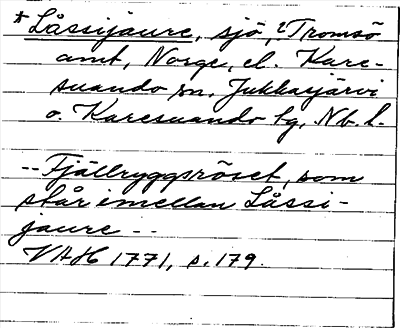 * Låssijaure, sjö, ? Tromsö
amt, Norge, el. Kare-
suando sn, Jukkasjärvi
o. Karesuando tg, Nb. l.
-- Fjällryggsröset, som
står imellan Låssi-
jaure --
VAH 1771, s. 179.